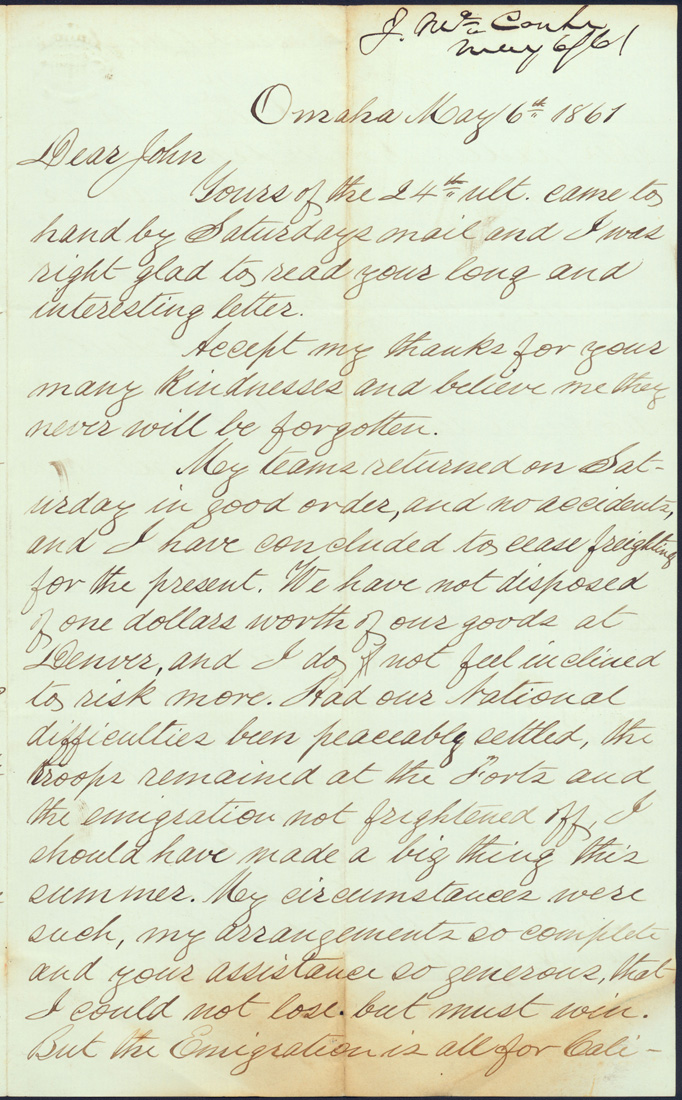 J. McConihe
May 6/61
Omaha May 6th 1861
Dear John
Yours of the 24th ult. came to
hand by Saturdays mail and I was
right glad to read your long and
interesting letter.
Accept my thanks for your
many kindnesses and believe me they
never will be forgotten.
My teams returned on Sat-
urday in good order, and no accidents,
and I have concluded to cease freighting
for the present. We have not disposed
of one dollars worth of our goods at
Denver, and I do not feel inclined
to risk more. Had our National
difficulties been peaceably settled, the
troops remained at the Forts and
the emigration not frightened off, I
should have made a big thing this
summer. My circumstances were
such, my arrangements so complete
and your assistance so generous, that
I could not lose but must win.
But the Emigration is all for Cali-